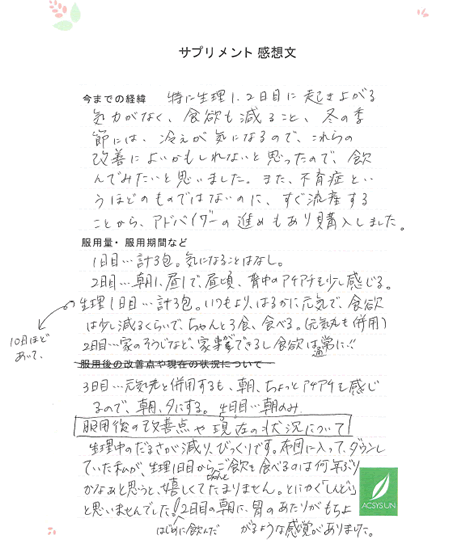 サプリメント感想文
今までの経緯 特に生理1、2日目に起き上がる
気力がなく、食欲も減ること、冬の季
節には、冷えが気になるので、これらの
改善によいかもしれないと思ったので、飲
んでみたいと思いました。また、不育症とい
うほどのものではないのに、すぐ流産する
ことから、アドバイザーの進めもあり購入しました。
服用量・服用期間など
1日目…計3包。気になることはなし。
2日目…朝1、昼1で、昼頃、背中のアチアチを少し感じる。
生理1日目…計3包。いつもより、はるかに元気で、食欲
は少し減るくらいで、ちゃんと3食、食べる。(元気丸も併用)
10日ほど
あいて、
2日目…家のそうじなど、家事できるし食欲は普通に!!
服用後の改善点や現在の状況について
3日目…元気丸と併用するも、朝、ちょっとアチアチを感じ
るので、朝、夕にする。4日目…朝のみ
服用後の改善点や現在の状況について
生理中のだるさが減り、びっくりです。布団に入って、ダウンし
ていた私が、生理1日目からご飯を食べるのは何年ぶり
かなぁと思うと、嬉しくてたまりません。とにかく「しんど」
と思いませんでした!2日目の朝に、胃のあたりがもちよ
はじめに飲んだ
がるような感覚がありました。
ACSYSUN